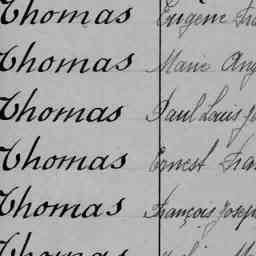 Thomas Eugene
Thomas Marie
Thomas Paul Louis
Thomas Ernest
Thomas François Joseph
Thomas